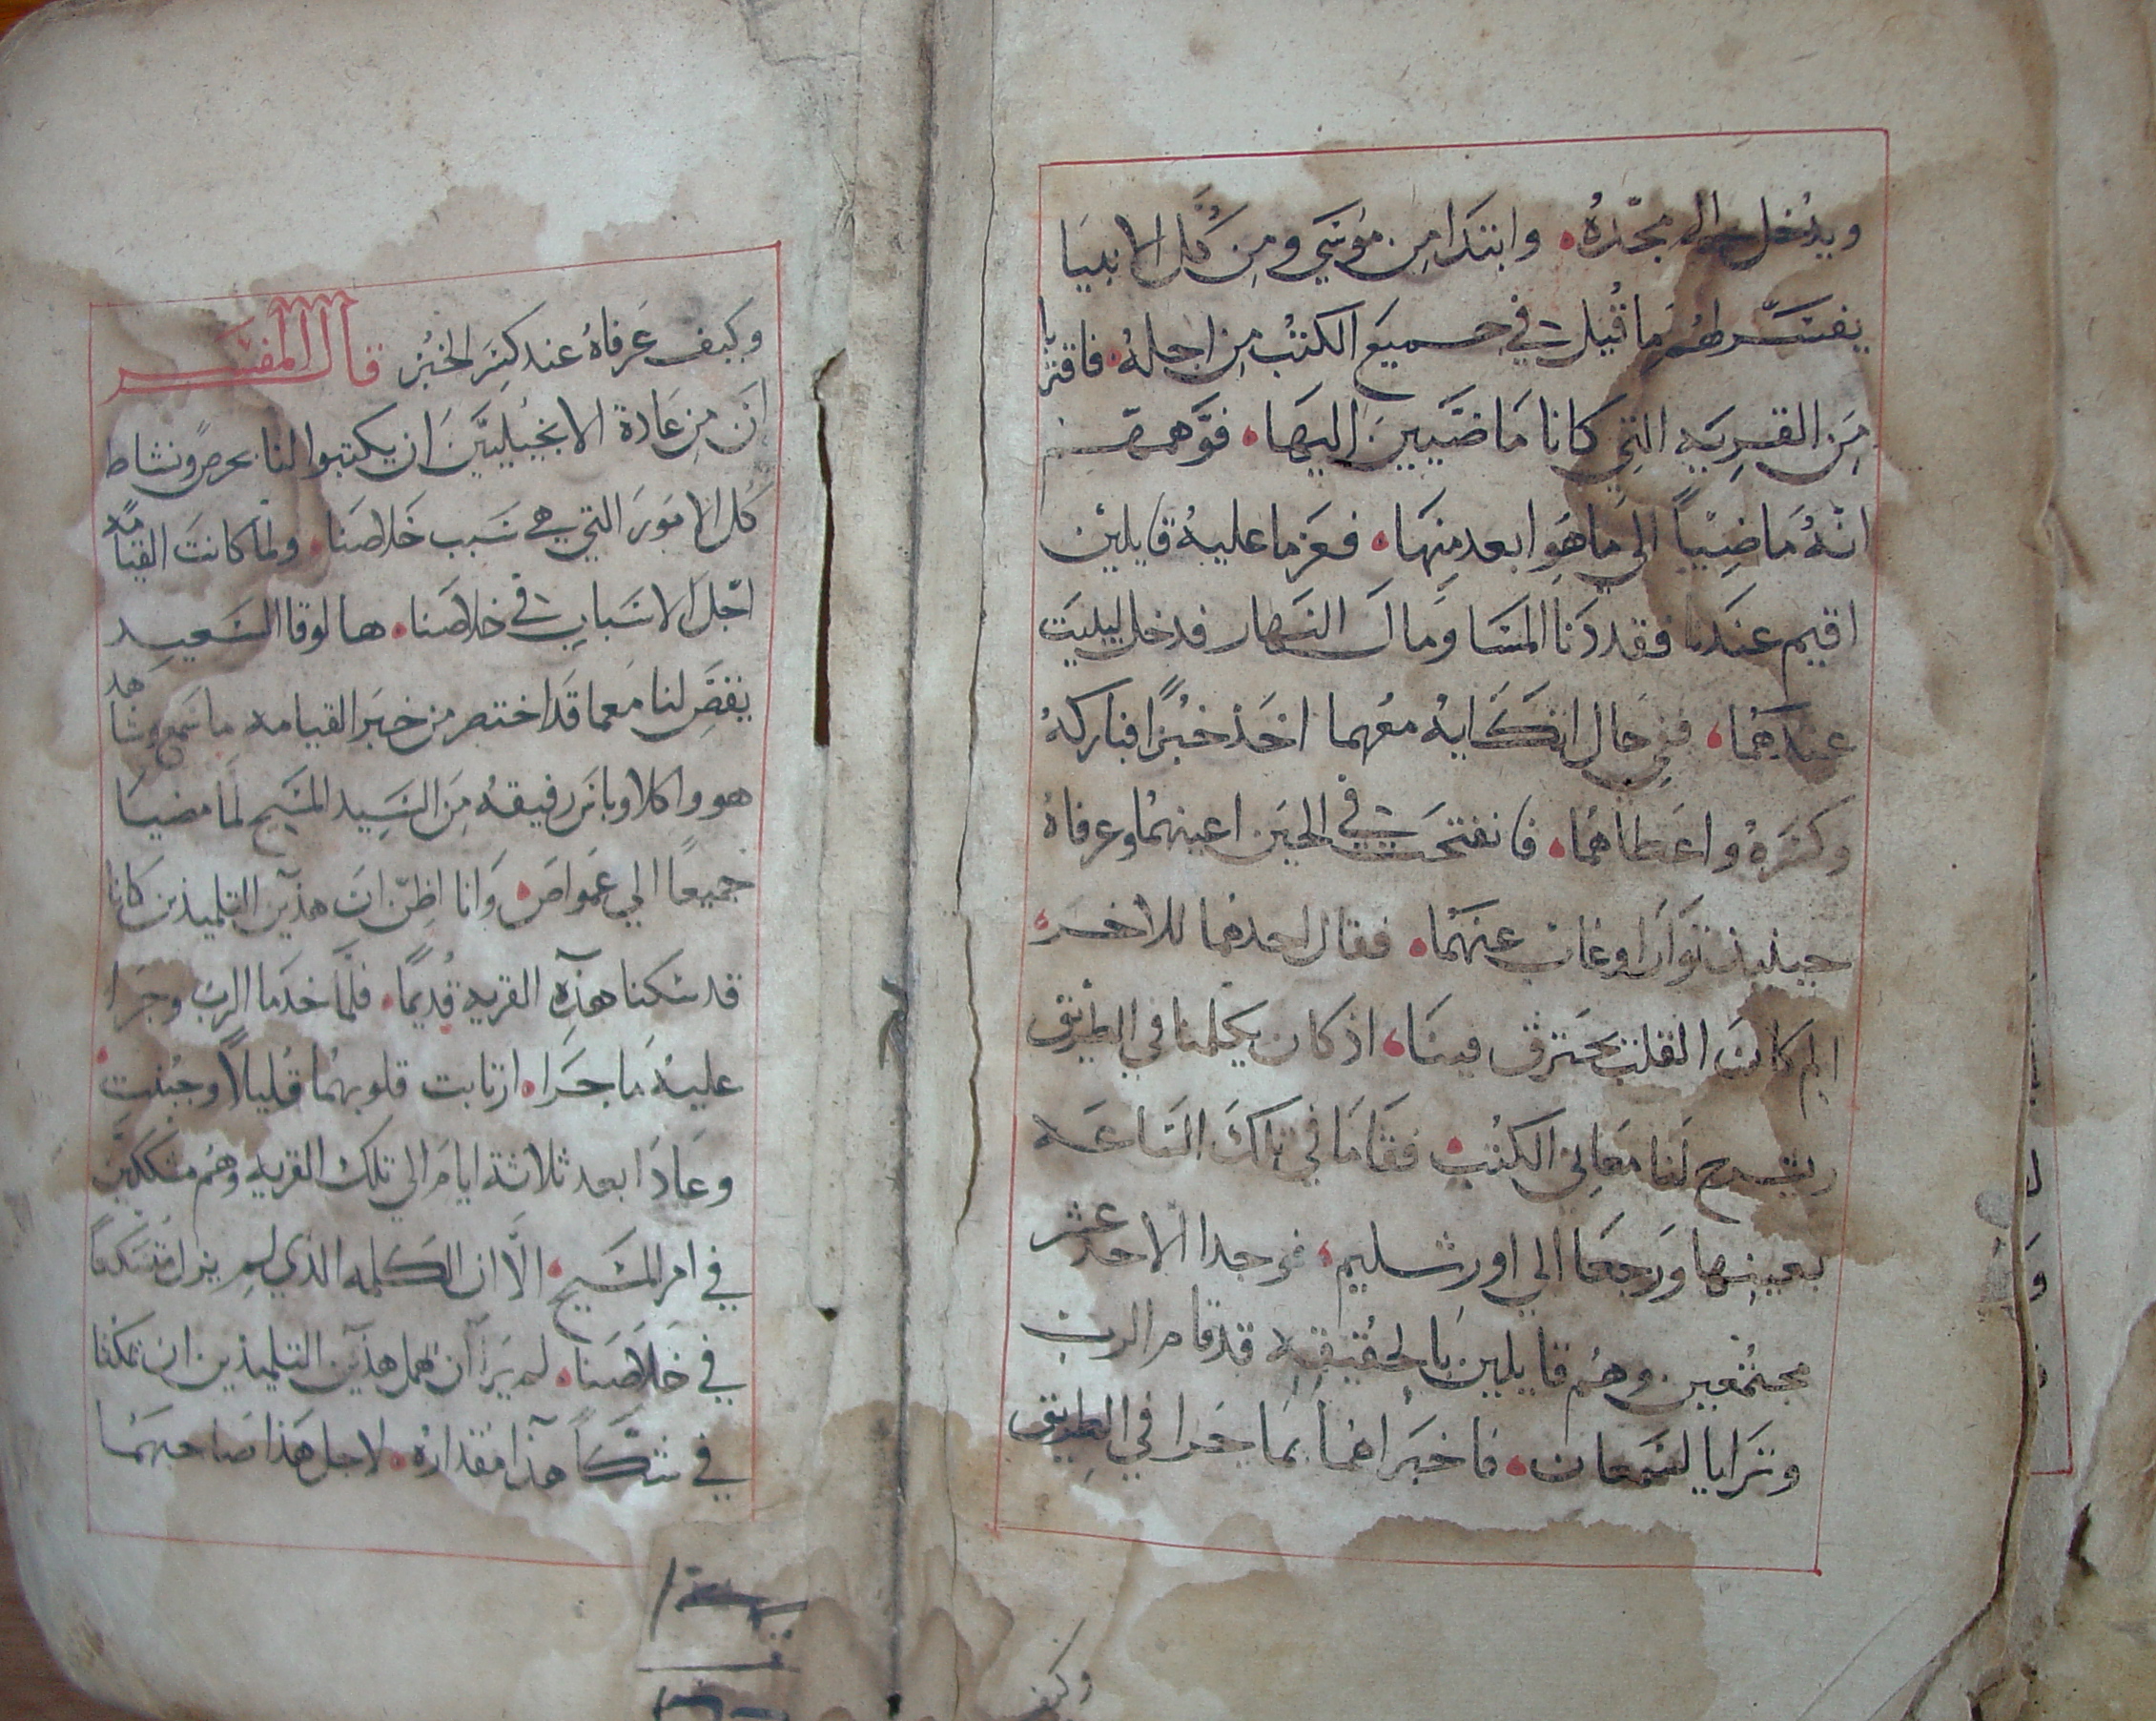 ويدخل الى مجده وابتدا من موسي ومن كل الانبيا
يفسر لهم ما قيل في جميع الكتب من اجله فاقتربا
من القريه التي كانا ماضيين اليها فوهمهم
انه ماضياً الي ما هو ابعد منها فعزما عليه قايلين
اقيم عندنا فقد دنا المسا ومال النهار فدخل ليبيت
عندهما ففي حال اتكايه معهما اخذ خبزًا فباركه
وكسره واعطاهما فانفتحت في الحين اعينهما وعرفاه
حينيذ توارا وغاب عنهما فقال احدهما للاخر
الم كان القلب يحترق فينا اذ كان يكلمنا في الطريق
ويشرح لنا معاني الكتب فقاما في تلك الساعه
بعينها ورجعا الي اورشليم فوجدا الاحد عشر
مجتمعين وهم قايلين بالحقيقه قد قام الرب
وترايا لسمعان فاخبراهما بما جرا في الطريق
وكيف
وكيف عرفاه عند كسر الخبز قال المفسر
ان من عادة الانجيليين ان يكتبوا لنا بحرص ونشاط
كل الامور التي هي سبب خلاصنا ولما كانت القيامه
اجل الاسباب في خلاصنا ها لوقا السعيد
يقص لنا معما قد اختصر من خبر القيامه ما سمع وشاهد
هو واكلاوباس رفيقه من السيد المسيح لما مضيا
جميعًا الي عمواص وانا اظن ان هذين التلميذين كانا
قد سكنا هذه القريه قديمًا فلما خدما الرب وجرا
عليه ما جرا ارتابت قلوبهما قليلاً وجبنت
وعادا بعد ثلاثة ايام الي تلك القريه وهم مشككين
في امر المسيح الا ان الكلمه الذي لم يزل متسكعًا
في خلاصنا لم يرا ان يهمل هذين التلميذين ان يمكثا
في شكًا هذا مقداره لاجل هذا صاحبهما